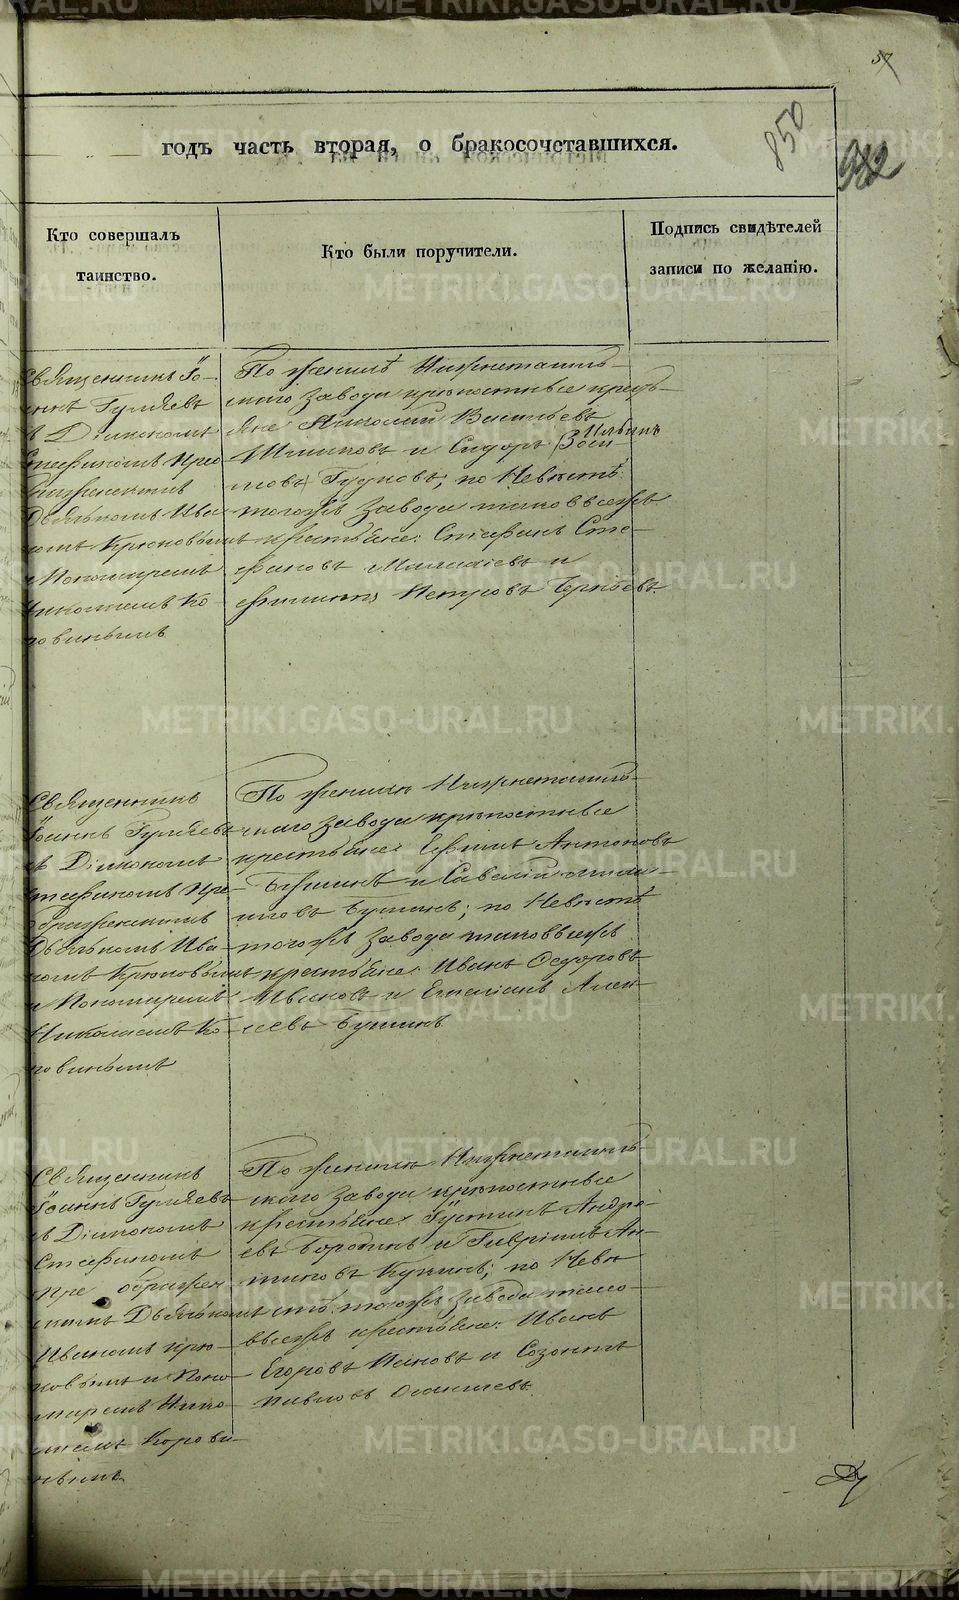 57
850
982
годъ часть вторая, о бракосочетавшихся.
Кто совершалъ таинство.
Кто были поручители.
Подпись свидѣтелей записи по желанію.
Священникъ Іо-
аннъ Гуляевъ
съ Діакономъ
Стефаномъ Прео
браженскимъ
Дьячкомъ Ива
номъ Крюковымъ
и Пономаремъ
Николаемъ Ко
ровинымъ
По женихѣ Нижнетагиль-
скаго завода крѣпостные кресть-
яне Николай Васильевъ
и Сидоръ Ильинъ
Гудковъ; по Невѣстѣ
тогожъ завода таковыеже
крестьяне: Стефанъ Сте-
фановъ и
Филиппъ Петровъ
Священникъ
Іоаннъ Гуляевъ
съ Діакономъ
Стефаномъ Пре-
ображенскимъ
Дьячкомъ Ива-
номъ Крюковымъ
и Пономаремъ
Николаемъ Ко-
ровинымъ
По женихѣ Нижнетагиль-
скаго завода крѣпостные
крестьяне: Ефимъ Антоновъ
и Савелій
по Невѣстѣ
тогожъ завода таковыежъ
крестьяне: Иванъ Ѳедоровъ
Ивановъ и Емеліанъ Алек-
сеевъ
Священникъ
Іоаннъ Гуляевъ
съ Діакономъ
Стефаномъ
Преображен-
скимъ Дьячкомъ
Иваномъ Крю-
ковымъ и Поно-
маремъ Нико-
лаемъ Корови-
нымъ
По женихѣ Нижнетагиль-
скаго завода крѣпостные
крестьяне: Іустинъ Андре-
евъ Бородинъ и Гавріилъ
по Невѣ
стѣ: тогожъ завода тако-
выежъ крестьяне: Иванъ
Егоровъ и Созонтъ
Павловъ
METRIKI.GASO-URAL.RU